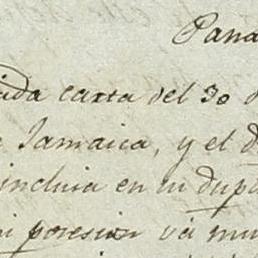 Pana
ida carta del 30 d
Jamaica, y el d
incluia en su dup
mi posesion va mu